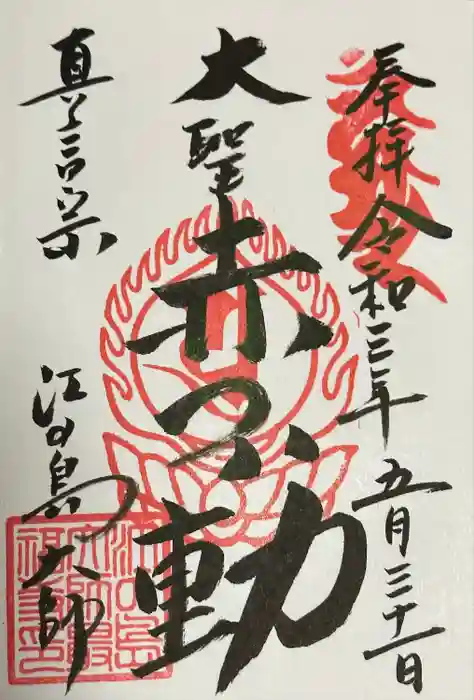 奉拝 令和三年五月三十一日
大聖
赤不動
真言宗
江の島大師